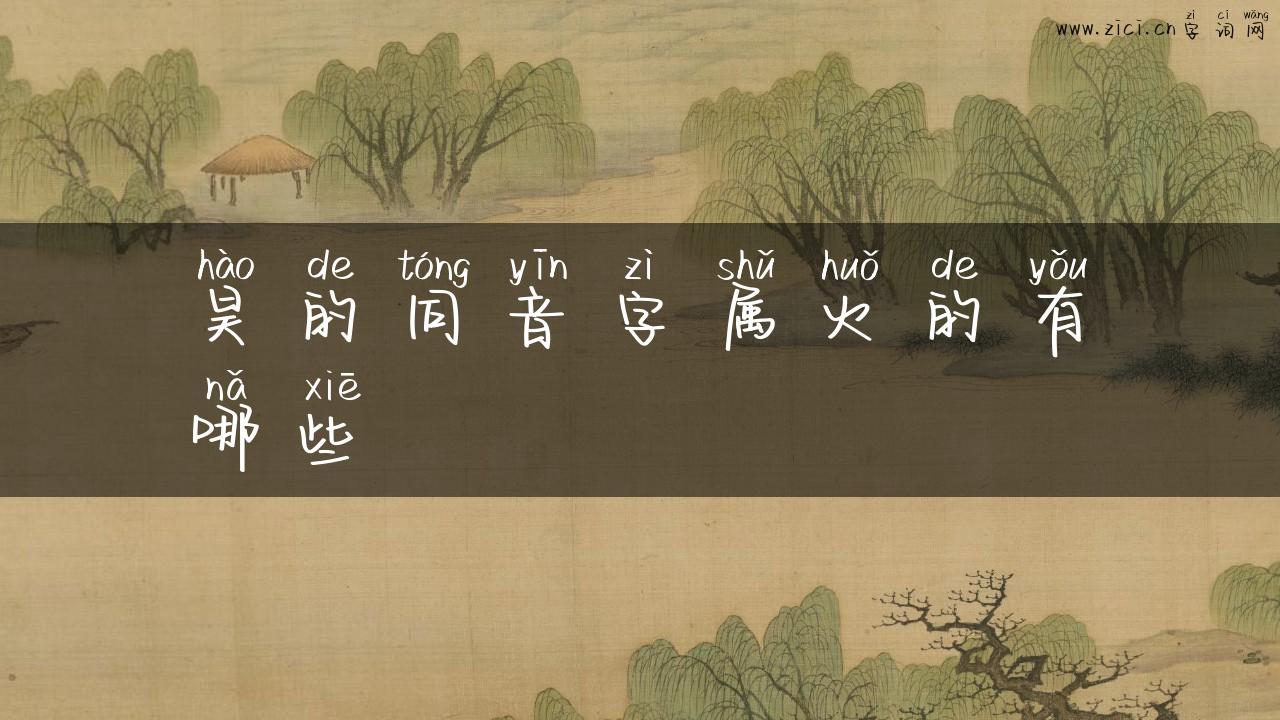 zì cí wǎng
www.zici.cn 字 词 网
hào de tóng yīn zì shǔ huǒ de yǒu
昊 的 同 音 字 属 火 的 有
nǎ xiē
哪 些